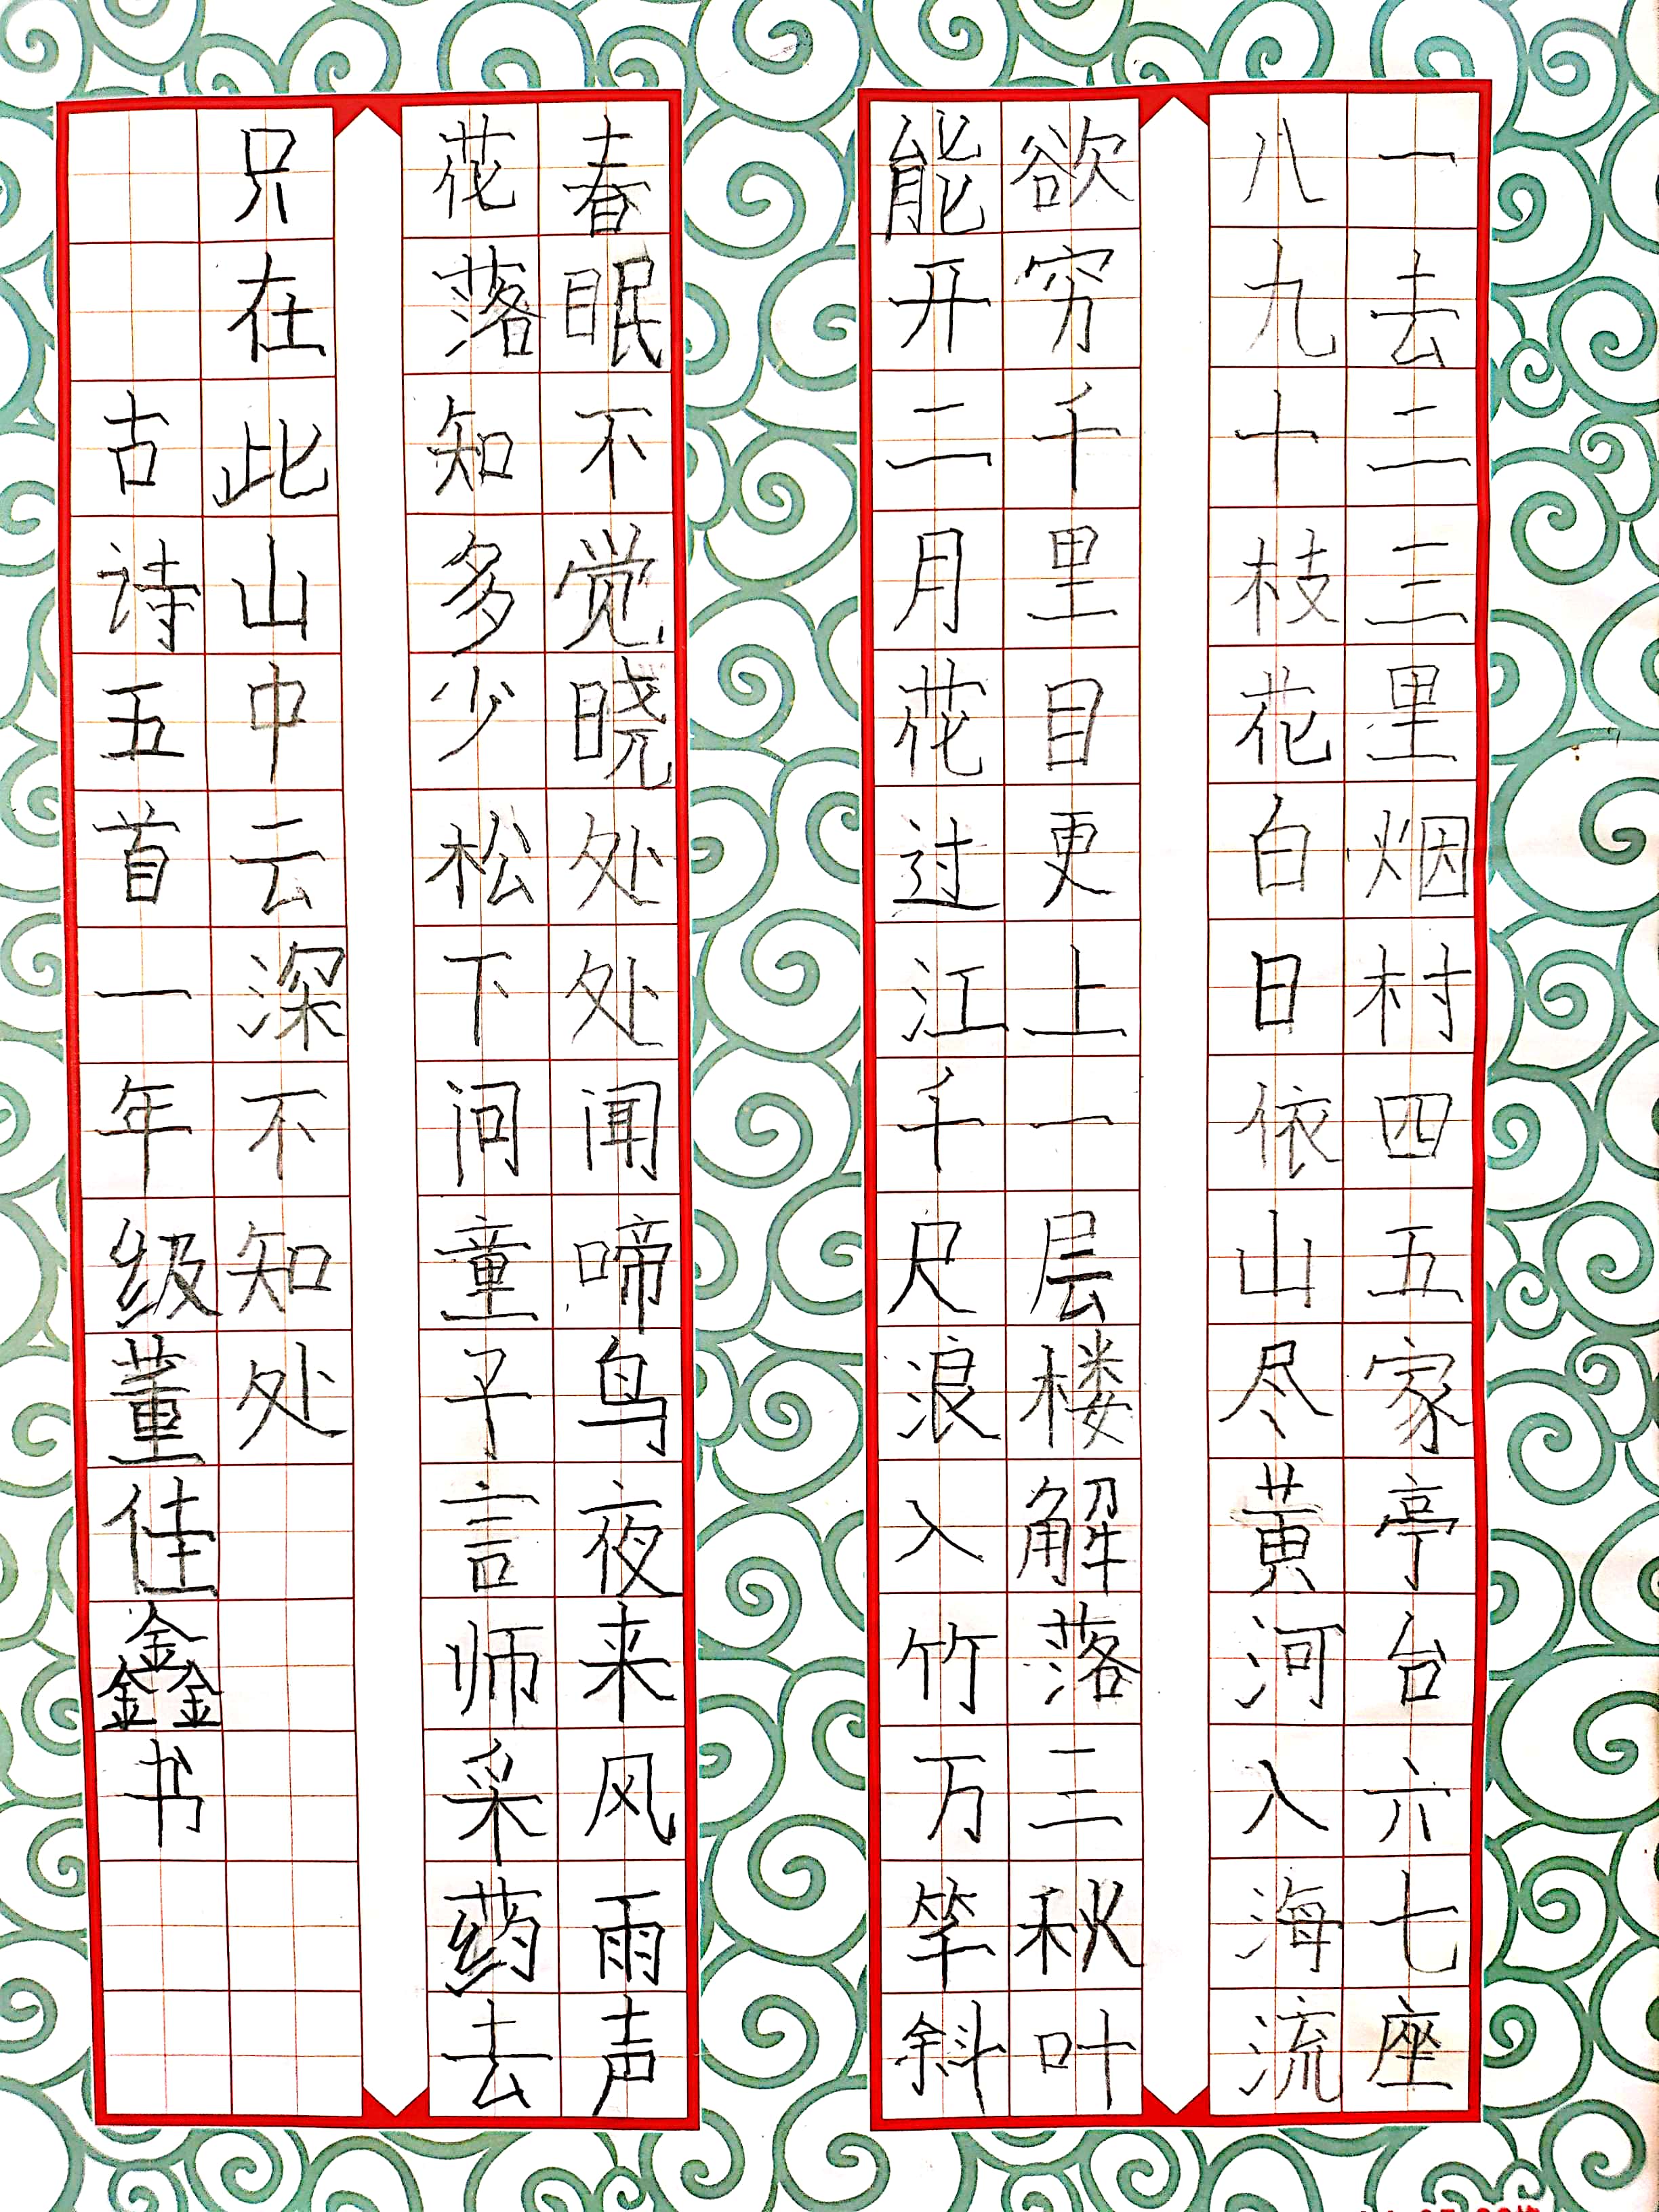 一去二三里烟村四五家亭台六七座
八九十枝花白日依山尽黄河入海流
欲穷千里目更上一层楼解落三秋叶
能开二月花过江千尺浪入竹万竿斜
春眠不觉晓处处闻啼鸟夜来风雨声
花落知多少松下问童子言师采药去
只在此山中云深不知处
古诗五首一年级董佳鑫书